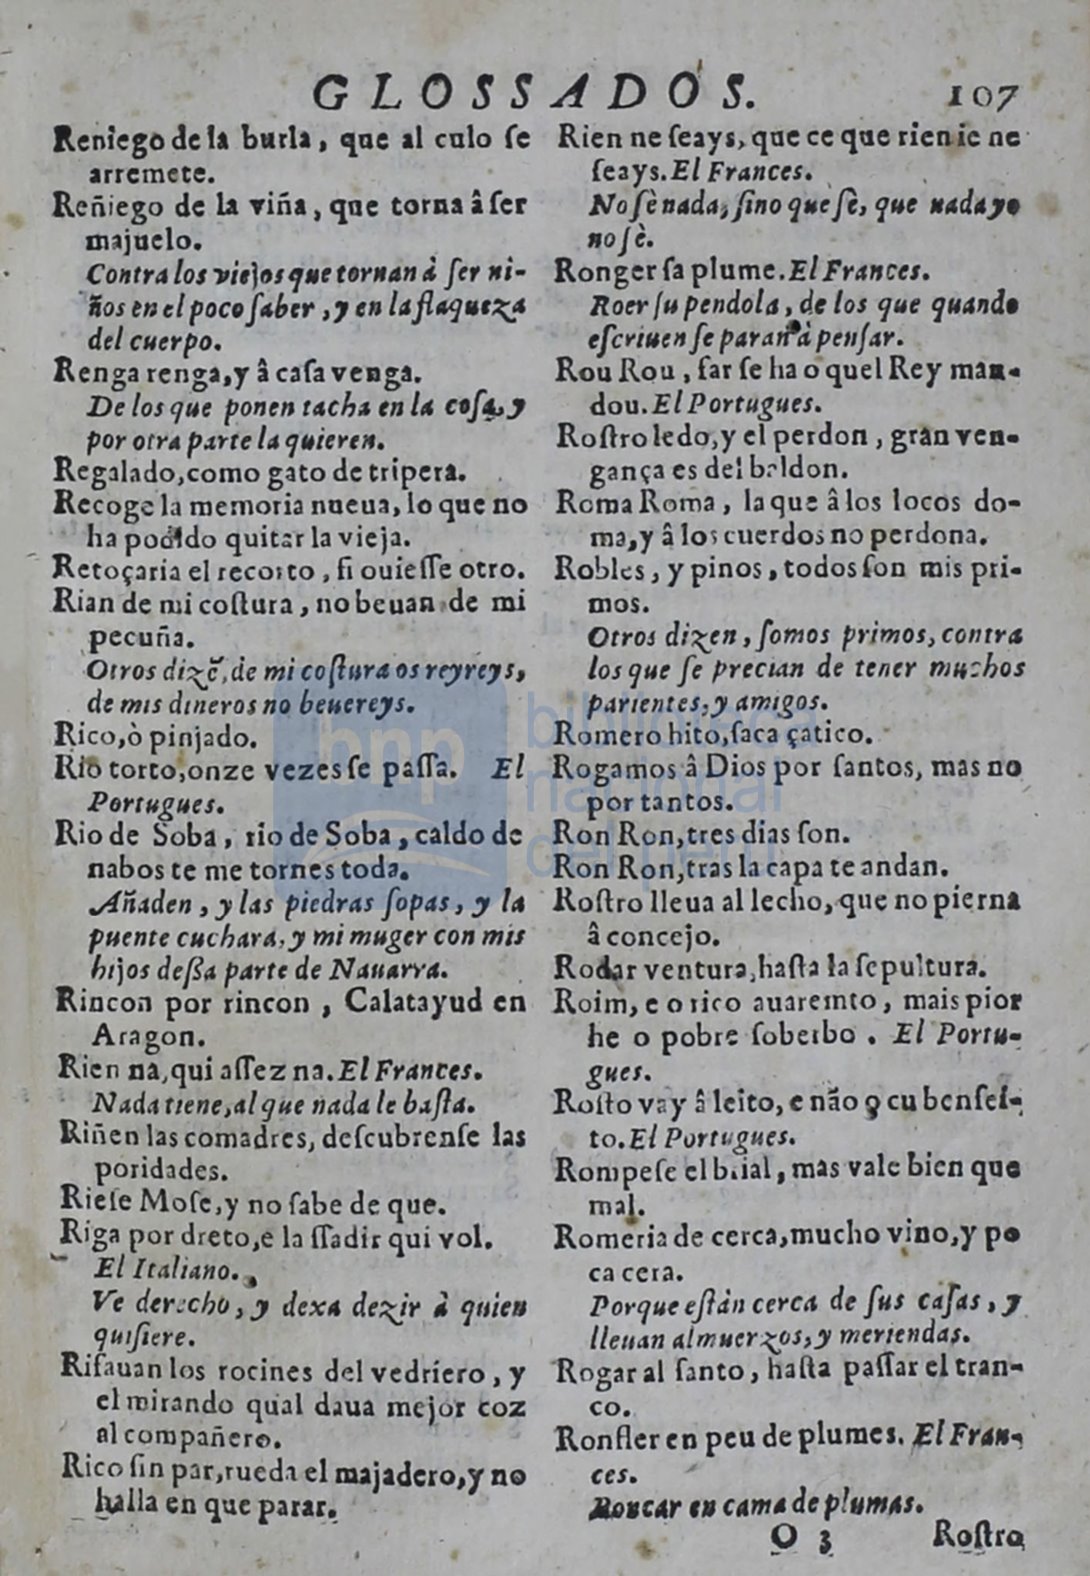 GLOSSADOS. 107
Reniego de la burla, que al culo ſe
arremete.
Reñiego de la viña, que torna â ſer
majuelo.
Contra los viejos que tornan à ſer ni-
ños en el poco ſaber, y en la flaqueza
del cuerpo.
Renga renga, y â caſa venga.
De los que ponen tacha en la coſa, y
por otra parte la quieren.
Regalado, como gato de tripera.
Recoge la memoria nueua, lo que no
ha podido quitar la vieja.
Retoçaria el recoſto, ſi ouieſſe otro.
Rian de mi coſtura, no beuan de mi
pecuña.
Otros dizẽ, de mi coſtura os reyreys,
de mis dineros no beuereys.
Rico, ò pinjado.
Rio torto, onze vezes ſe paſſa. El
Portugues.
Rio de Soba, rio de Soba, caldo de
nabos te me tornes toda.
Añaden, y las piedras ſopas, y la
puente cuchara, y mi muger con mis
hijos deſſa parte de Nauarra.
Rincon por rincon, Calatayud en
Aragon.
Rien na, qui aſſez na. El Frances.
Nada tiene, al que nada le baſta.
Riñen las comadres, deſcubrenſe las
poridades.
Rieſe Moſe, y no ſabe de que.
Riga por dreto, e la ſſadir qui vol.
El Italiano.
Ve derecho, y dexa dezir à quien
quiſiere.
Riſauan los rocines del vedriero, y
el mirando qual daua mejor coz
al compañero.
Rico ſin par, rueda el majadero, y no
halla en que parar.
Rien ne ſeays, que ce que rien ie ne
ſeays. El Frances.
No ſè nada, ſino que ſè, que nada yo
no ſè.
Ronger ſa plume. El Frances.
Roer ſu pendola, de los que quando
eſcriuen ſe paran à penſar.
Rou Rou, far ſe ha o quel Rey man-
dou. El Portugues.
Roſtro ledo, y el perdon, gran ven-
gança es del baldon.
Roma Roma, la que â los locos do-
ma, y â los cuerdos no perdona.
Robles, y pinos, todos ſon mis pri-
mos.
Otros dizen, ſomos primos, contra
los que ſe precian de tener muchos
parientes, y amigos.
Romero hito, ſaca çatico.
Rogamos â Dios por ſantos, mas no
por tantos.
Ron Ron, tres dias ſon.
Ron Ron, tras la capa te andan.
Roſtro lleua al lecho, que no pierna
â concejo.
Rodar ventura, haſta la ſepultura.
Roim, e o rico auaremto, mais pior
he o pobre ſoberbo. El Portu-
gues.
Roſto vay â leito, e não o cu benfei-
to. El Portugues.
Rompeſe el brial, mas vale bien que
mal.
Romeria de cerca, mucho vino, y po
ca cera.
Porque eſtàn cerca de ſus caſas, y
lleuan almuerzos, y meriendas.
Rogar al ſanto, haſta paſſar el tran-
co.
Ronfler en peu de plumes. El Fran-
ces.
Roncar en cama de plumas.
O 3 Roſtro
bnp biblioteca
nacional
del perú